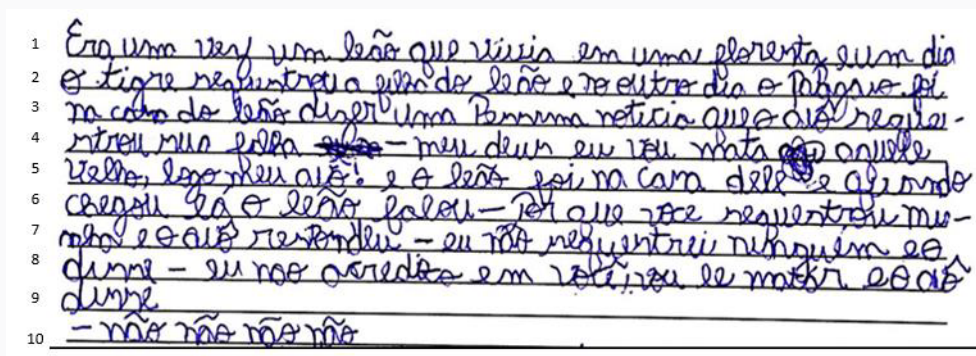 1 Era uma vez um leão que vivia em uma floresta, e um dia
2 o tigre sequentrou a filha do leão e no outro dia o Pássaro foi
3 na casa do leão dizer uma Péssima noticia que o avô seques-
4 ntrou sua filha - meu deus eu vou mata aquele
5 velho, logo meu avô! e o leão foi na casa dele e quando
6 chegou lá o leão falou - Por que voce sequentrou mi-
7 nha e o avô respondeu - eu não sequentrei ninguém e o
8 disse - eu não acredito em você, vou le matar e o avô
9 disse
10 - não não não não